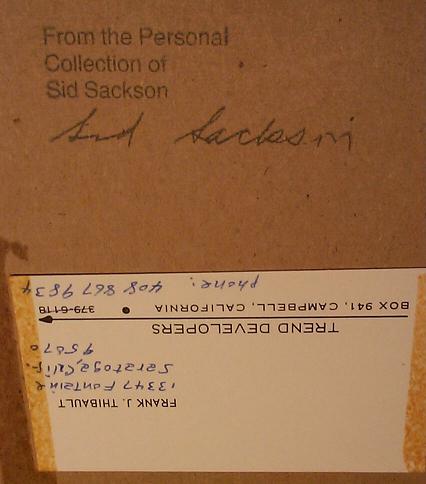 From the Personal
Collection of
Sid Sackson
Sid Sackson
FRANK J. THIBAULT
13347 Fontaine
Saratoga, Calif.
95070
TREND DEVELOPERS
BOX 941, CAMPBELL, CALIFORNIA • 379-6118
phone: 408 867 9834